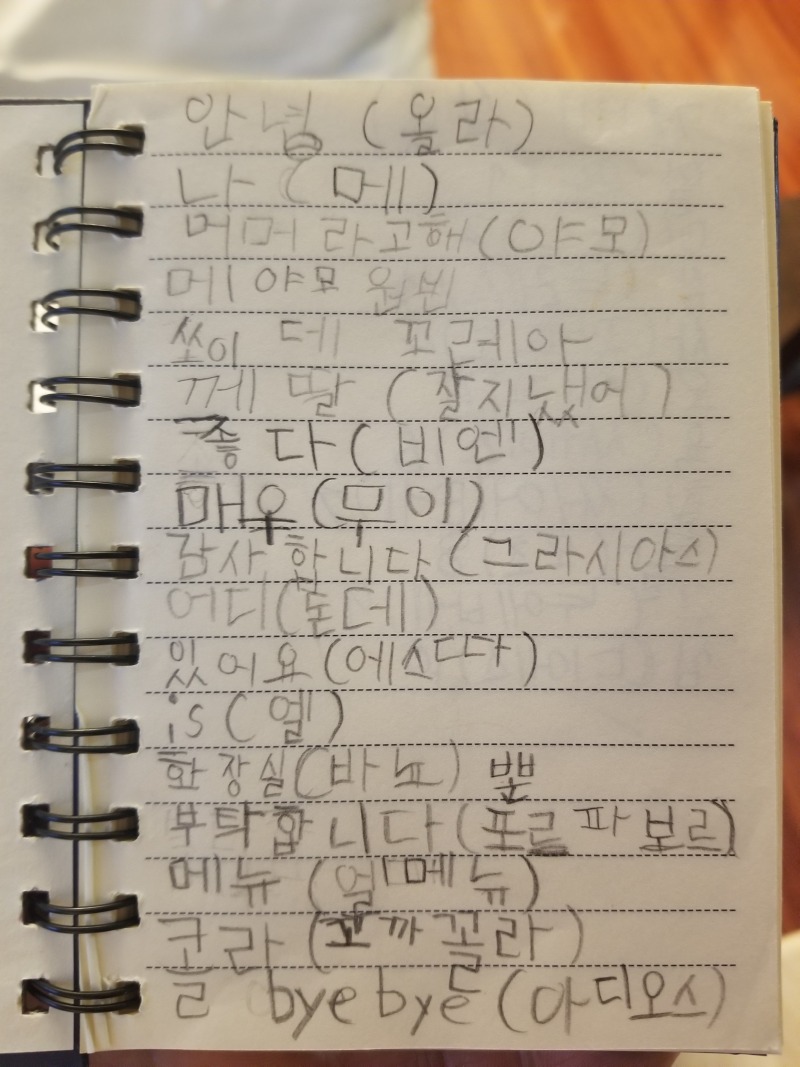 안녕 (올라)
나 (메)
머머 라고해 (야모)
메 야모 원빈
쏘이 데 꼬레아
께 딸 (잘지냈어)
좋다 (비엔)
매우 (무이)
감사합니다 (그라시아스)
어디 (돈데)
있어요 (에스따)
is (엘)
화장실 (바뇨) 뿐
부탁합니다 (포르 파 보르)
메뉴 (얼메뉴)
콜라 (꼬까 꼴라)
bye bye (아디오스)